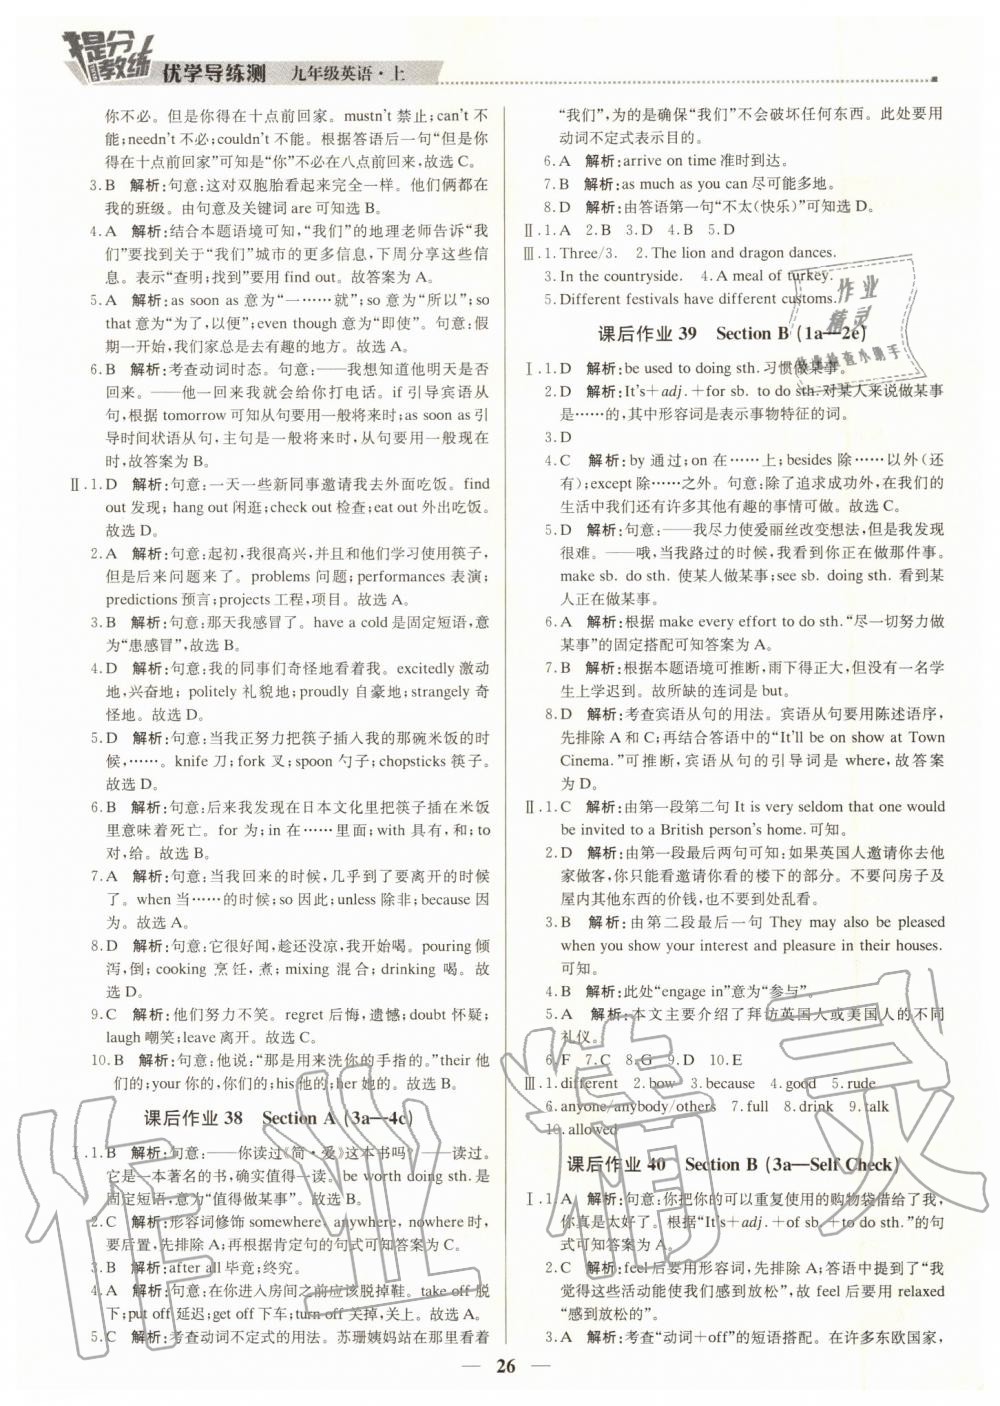 提分教练
优学导练测 九年级英语·上
你不必。但是你得在十点前回家。mustn't 禁止;can't 不
能;needn't 不必;couldn't 不能。根据答语后一句“但是你
得在十点前回家”可知是“你”不必在八点前回来,故选 C。
3. B 解析:句意:这对双胞胎看起来完全一样。他们俩都在
我的班级。由句意及关键词 are 可知选 B。
4. A 解析:结合本题语境可知,“我们”的地理老师告诉“我
们”要找到关于“我们”城市的更多信息,下周分享这些信
息。表示“查明;找到”要用 find out。故答案为 A。
5. A 解析:as soon as 意为“一……就”;so 意为“所以”;so
that 意为“为了,以便”;even though 意为“即使”。句意:假
期一开始,我们总是出去有趣的地方。故答案为 A。
6. B 解析:考查动词时态。句意:——我想知道他明天是否
回来。——他一回来我就会给你打电话。if 引导宾语从
句,根据 tomorrow 可知从句要用一般将来时;as soon as 引
导时间状语从句,主句是一般将来时,从句要用一般现在
时,故答案为 B。
Ⅱ. 1. D 解析:句意:一天一些新同事邀请我去外面吃饭。find
out 发现; hang out 闲逛;check out 检查;eat out 外出吃饭。
故选 D。
2. A 解析:句意:起初,我很高兴,并且和他们学习使用筷子,
但是后来问题来了。problems 问题;performances 表演;
predictions 预言;projects 工程,项目。故选 A。
3. B 解析:句意:那天我感冒了。have a cold 是固定短语,意
为“患感冒”,故选 B。
4. D 解析:句意:我的同事们奇怪地看着我。excitedly 激动
地,兴奋地; politely 礼貌地;proudly 自豪地;strangely 奇
怪地。故选 D。
5. D 解析:句意:当我正努力把筷子插入我的那碗米饭的时
候,……。knife 刀;fork 叉;spoon 勺子;chopsticks 筷子。
故选 D。
6. B 解析:句意:后来我发现在日本文化里把筷子插在米饭
里意味着死亡。for 为;in 在……里面;with 具有,和;to
对,给。故选 B。
7. A 解析:句意:当我回来的时候,几乎到了要离开的时候
了。when 当……的时候;so 因此;unless 除非;because 因
为。故选 A。
8. D 解析:句意:它很好闻,趁还没凉,我开始喝。pouring 倾
泻,倒; cooking 烹饪,煮; mixing 混合; drinking 喝。故
选 D。
9. C 解析:句意:他们努力不笑。regret 后悔,遗憾;doubt 怀疑;
laugh 嘲笑;leave 离开。故选 C。
10. B 解析:句意:他说:“那是用来洗你的手指的。”their 他
们的;your 你的,你们的;his 他的;her 她的。故选 B。
课后作业 38 Section A (3a—4c)
Ⅰ. 1. B 解析:句意:——你读过《简·爱》这本书吗?——读过。
它是一本著名的书,确实值得一读。be worth doing sth. 是
固定短语,意为“值得做某事”。故答案为 B。
2. C 解析:形容词修饰 somewhere, anywhere, nowhere 时,
要后置,先排除 A;再根据肯定句的句式可知答案为 C。
3. B 解析:after all 毕竟;终究。
4. A 解析:句意:在你进入房间之前应该脱掉鞋。take off 脱
下;put off 延迟;get off 下车;turn off 关掉,关上。故选 A。
5. C 解析:考查动词不定式的用法。苏珊姨妈站在那里看着
“我们”,为的是确保“我们”不会破坏任何东西。此处要用
动词不定式表示目的。
6. A 解析:arrive on time 准时到达。
7. B 解析:as much as you can 尽可能多地。
8. D 解析:由答语第一句“不太(快乐)”可知选 D。
Ⅱ. 1. A 2. B 3. D 4. B 5. D
Ⅲ. 1. Three/3. 2. The lion and dragon dances.
3. In the countryside. 4. A meal of turkey.
5. Different festivals have different customs.
课后作业 39 Section B (1a—2e)
Ⅰ. 1. D 解析:be used to doing sth. 习惯做某事。
2. D 解析:It's+adj. +for sb. to do sth. 对某人来说做某事
是……的,其中形容词是表示事物特征的词。
3. D
4. C 解析:by 通过;on 在……上;besides 除……以外(还
有);except 除……之外。句意:除了追求成功外,在我们的
生活中我们还有许多其他有趣的事情可做。故选 C。
5. D 解析:句意:——我尽力使爱丽丝改变想法,但是我发现
很难。——哦,当我路过的时候,我看见她正在做那件事。
make sb. do sth. 使某人做某事;see sb. doing sth. 看到某
人正在做某事。
6. A 解析:根据 make every effort to do sth. “尽一切努力做
某事”的固定搭配可知答案为 A。
7. B 解析:根据本题语境可推断,雨下得正大,但没有一名学
生上学迟到。故所缺的连词是 but。
8. D 解析:考查宾语从句的用法。宾语从句要用陈述语序,
先排除 A 和 C;再结合答语中的“It'll be on show at Town
Cinema.”可推断,宾语从句的引导词是 where,故答案
为 D。
Ⅱ. 1. C 解析:由第一段第二句 It is very seldom that one would
be invited to a British person's home. 可知。
2. D 解析:由第一段最后两句可知:如果英国人邀请你去他
家做客,你只能看邀请你看的楼下的部分。不要问房子及
屋内其他东西的价钱,也不要到处乱看。
3. B 解析:由第二段最后一句 They may also be pleased
when you show your interest and pleasure in their houses.
可知。
4. B 解析:此处“engage in”意为“参与”。
5. A 解析:本文主要介绍了拜访英国人或美国人的不同
礼仪。
6. F 7. C 8. G 9. D 10. E
Ⅲ. 1. different 2. bow 3. because 4. good 5. rude
6. anyone/anybody/others 7. full 8. drink 9. talk
10. allowed
课后作业 40 Section B (3a—Self Check)
Ⅰ. 1. A 解析:句意:你把你的可以重复使用的购物袋借给了我,
你真是太好了。根据“It's+adj. +of sb. +to do sth.”的句
式可知答案为 A。
2. C 解析:feel 后要用形容词,先排除 A;答语中提到了“我
觉得活动过后我们会感到放松”,故 feel 后要用 relaxed
“感到放松的”。
3. A 解析:考查“动词+off”的短语搭配。在许多东欧国家,
26
作业精灵
作业检查小助手
作业精灵